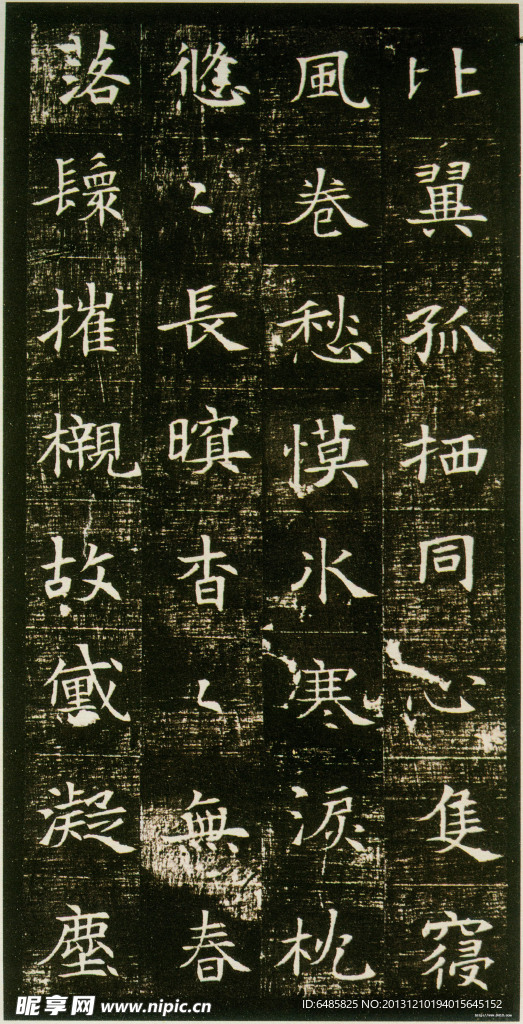 比翼孤栖同心隻寢
風卷愁慔氷寒淚枕
悠〻長暝杳〻無春
落鬟摧櫬故黛凝塵
昵享网 www.nipic.cn
ID:6485825 NO:20131210194015645152